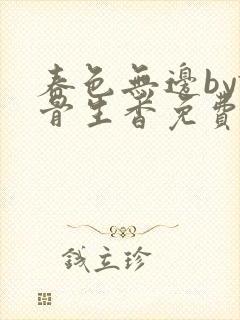 春色無邊by
骨生香免費
錢立珍